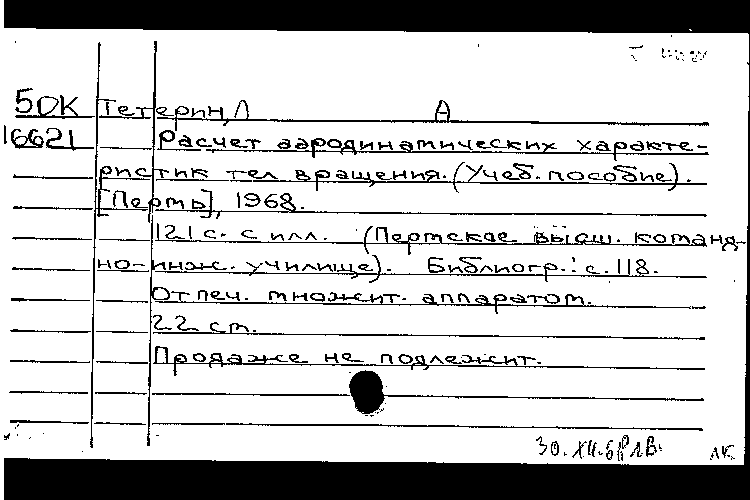 5DK Тетерин, Л А
16621 Расчет аэродинамических характе-
ристик тел вращения. (Учеб. пособие).
[Пермь], 1968.
121 с. с илл. (Пермское высш. команд-
но-инж. училище). Библиогр.: с. 118.
Отпеч. множит. аппаратом.
22 см.
Продаже не подлежит.
ЛК